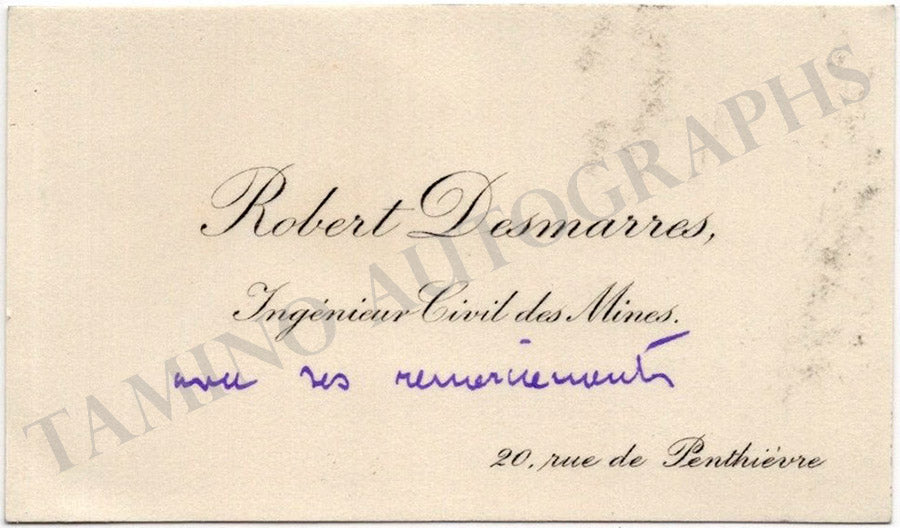 Robert Desmarres,
Ingénieur Civil des Mines.
avec ses remerciements
20, rue de Penthiévre
TAMINO AUTOGRAPHS